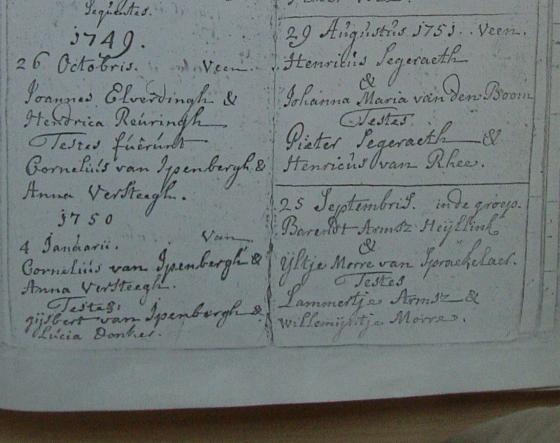 Sequentes.
1749.
26 Octobris. Veen
Joannes Elverdingh &
Hendrica Reuringh
Testes fuerunt
Cornelius van Ipenbergh &
Anna Versteegh.
1750
4 Januarii. Van
Cornelius van Ipenbergh &
Anna Versteegh.
Testes:
gijsbert van Ipenbergh &
Lucia Donker.
29 Augustus 1751. Veen.
Henricus Segeraeth
&
Johanna Maria van den Boom
Testes
Pieter Segeraeth &
Henricus van Rhee.
25 Septembris. inde groep.
Barendt Armsz Heijllink
&
Yltje Morre van Spraekelaer.
Testes
Lammertje Armsz &
willemijntje Morre.